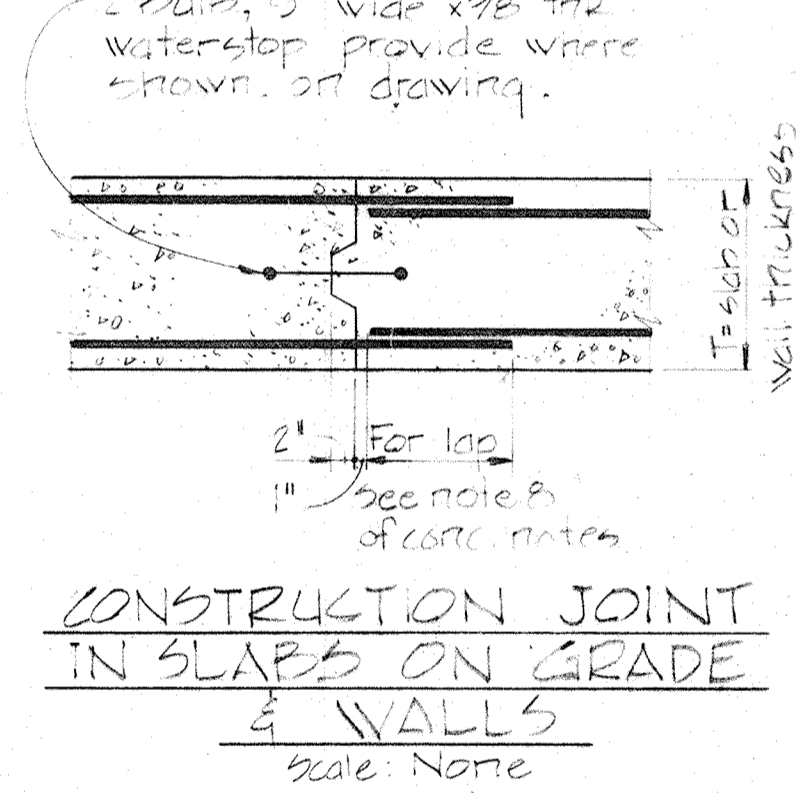 2 bulb, 5" wide x 3/8 thk
waterstop provide where
shown on drawing.
T = slab or
wall thickness
2" For lap
1" see note 8
of conc. notes
CONSTRUCTION JOINT
IN SLABS ON GRADE
& WALLS
Scale: None